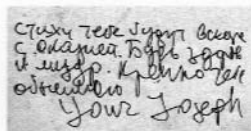 стихи тебе будут вскоре
с оказией. Будь здоров
и мудр. Крепко тебя
обнимаю
Your Joseph